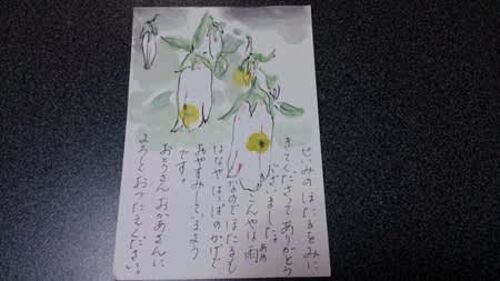 せいみのほたるをみに
きてくださってありがとう
ございました。
こんやは雨あめ
なのでほたるも
はなやはっぱのかげで
おやすみしているよう
です。
おとうさんおかあさんに
よろしくおつたえください。